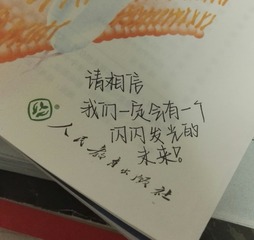 请相信
我们一定会有一个
闪闪发光的
未来!
人民教育出版社
®